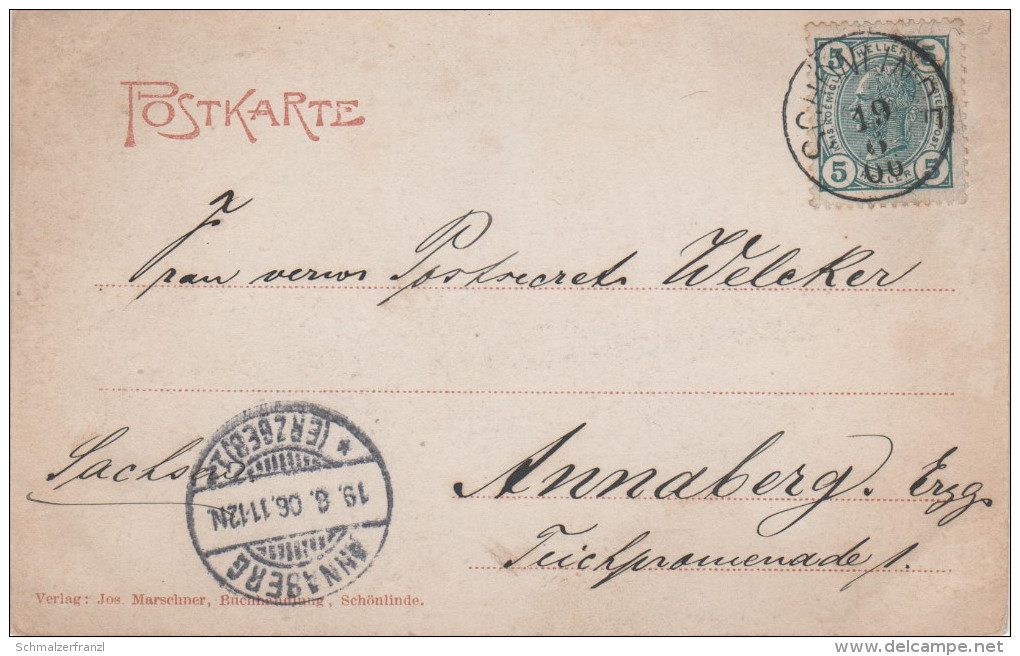 POSTKARTE
5 HELLER 5
5 HELLER 5
SCHÖNLINDE
19
8
06
Frau verw. Postsecret. Welcker
Sachsen
Annaberg. Erzg.
Teichpromenade 1.
ANNABERG
19. 8. 06. 11-12 N
* (ERZGEB.)
Verlag: Jos. Marschner, Buchhandlung, Schönlinde.
Schmalzerfranzl
delcampe.net